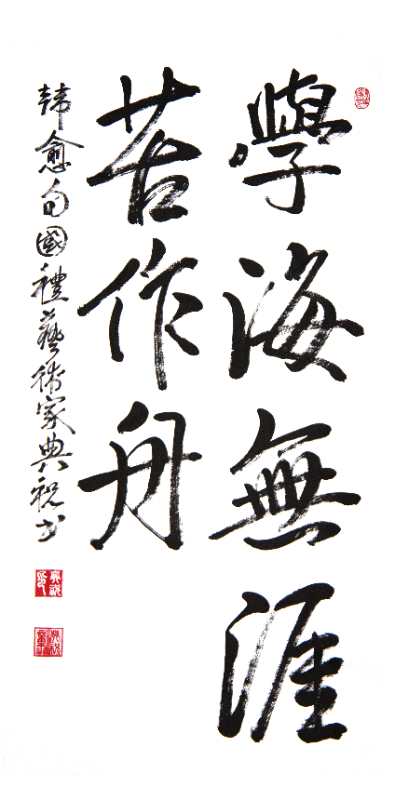 學海無涯
苦作舟
韓愈句國禮藝術家典祝书